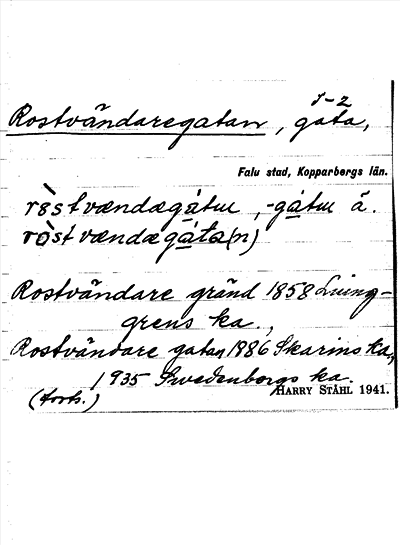 1-2
Rostvändaregatan, gata,
Falu stad, Kopparbergs län.
ròstvændægátuu, -gátuu ä.
ròstvændægáta(n)
Rostvändare gränd 1858 Ljung-
grens ka.,
Rostvändare gatan 1886 Skarins ka,
1935 Swedenborgs ka.
(forts.)
HARRY STÅHL 1941.